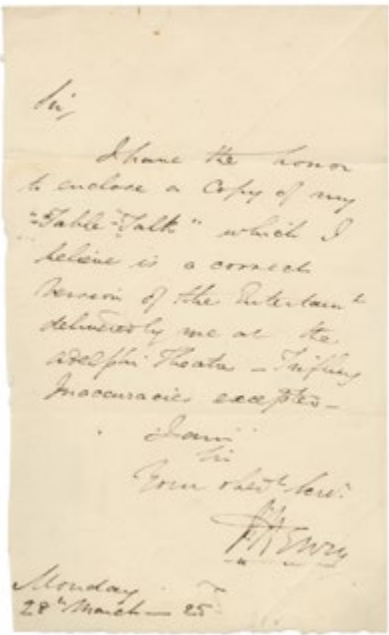 Sir,
I have the honor
to enclose a Copy of my
"Table-Talk" which I
believe is a correct
Version of the Entertaint
delivered by me at the
Adelphi Theatre - Trifling
Inaccuracies excepted -
I am
Sir
Your obedt Servt
Monday
28th March - 25